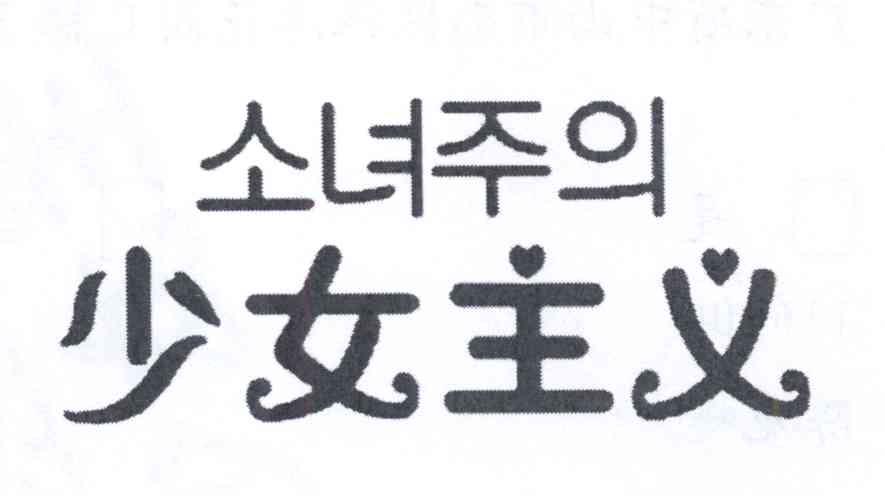 소녀주의
少女主义